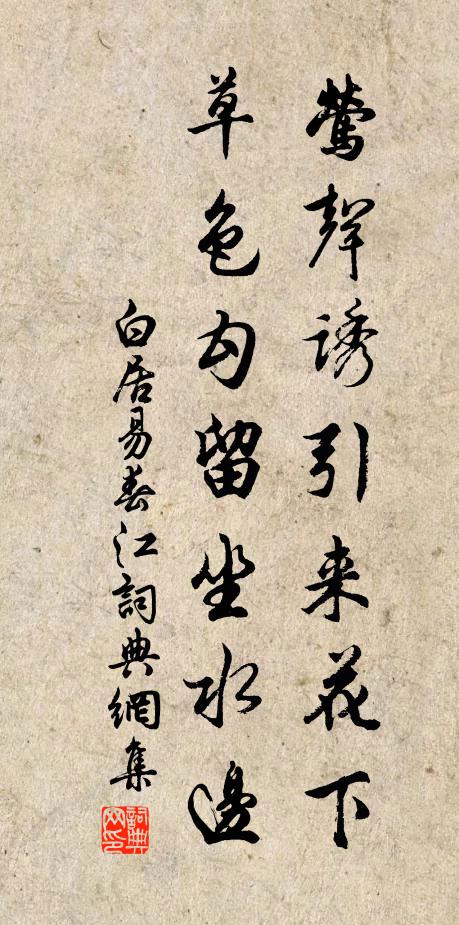 鶯聲誘引来花下
草色勾留坐水邊
白居易春江詞典網集
詞典网印